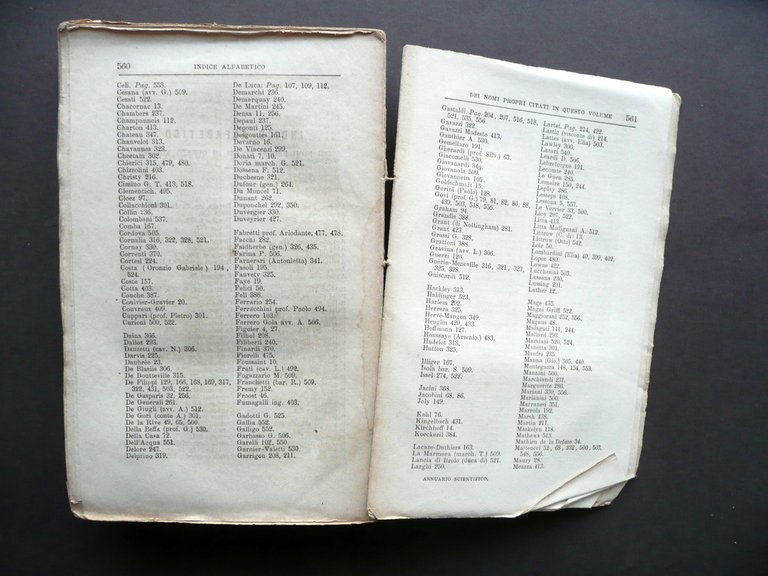 560
INDICE ALFABETICO
Celi. Pag. 553.
Cesana (avv. G.) 509.
Cesati 522.
Chacornac 13.
Chambers 237.
Champannois 112.
Charton 413.
Chatau 376.
Chauvelot 313.
Chavannes 323.
Cheetam 302.
Chierici 315, 479, 480.
Chizzolini 403.
Christy 216.
Cimino G. T. 413, 518.
Clemencich. 495.
Cloez 97.
Collacchioni 301.
Collin 236.
Colombani 537.
Comba 167.
Cordova 505.
Cornalia 316, 322, 328, 521.
Cornay 330.
Correnti 370.
Cortesi 224.
Costa (Oronzio Gabriele) 194,
524.
Coste 157.
Cotta 403.
Couche 387.
Coulvier-Gravier 20.
Couvreux 409.
Cuppari (prof. Pietro) 301.
Curioni 500, 522.
Daina 366.
Dallos 293.
Danzetti (cav. N.) 306.
Darvia 225.
Daubrée 23.
De Blasiis 306.
De Boutteville 315.
De Filippi 129, 166, 168, 169, 317,
322, 431, 503, 522.
De Gasparis 32, 256.
De Generali 261.
De Giugli (avv. A.) 512.
De Gori (conte A.) 301.
De la Rive 49, 65, 500.
Della Beffa (prof. G.) 530.
Della Casa 72.
Dell'Acqua 551.
Delore 247.
Delprino 319.
De Luca. Pag. 107, 109, 112.
Demarchi 236.
Demarquay 240.
De Martini 245.
Densa 11, 256.
Depaul 237.
Deponti 125.
Desgouttes 161.
Devarno 16.
De Vincenzi 299.
Donati 7, 10.
Doria march. G. 521.
Dossena F. 512.
Duchesne 321.
Dufour (gen.) 264.
Du Moncel 71.
Dunant 262.
Duponchel 292, 350.
Duvergier 330.
Duveyrier 427.
Fabretti prof. Ariodante, 477, 478.
Facchi 282.
Faidherbe (gen.) 326, 435.
Farina P. 506.
Farnerari (Antonietta) 341.
Fasoli 195.
Fauvety 325.
Faye 19.
Felici 50.
Fell 386.
Ferrario 254.
Ferracchini prof. Paolo 494.
Ferrero 103.
Ferrero Gola avv. A. 506.
Figuier 4, 27.
Filhol 208.
Filiberti 240.
Finardi 370.
Fiorelli 475.
Foussaint 10.
Frati (cav. L.) 492.
Fogazzario M. 509.
Franchetti (bar. R.) 509.
Fremy 152.
Froost 46.
Fumagalli ing. 403.
Gadotti G. 525.
Gallia 552.
Galligo 552.
Garbasso G. 506.
Garelli 102, 550.
Garnier-Valetti 530.
Garrigou 208, 211.
DEI NOMI PROPRI CITATI IN QUESTO VOLUME
561
Gastaldi. Pag. 204, 207, 516, 518,
521, 535, 556.
Gavazzi 322.
Gavazzi Modesto 413.
Gaunthier A. 530.
Gemellaro 191.
Gherardi (prof. Silv.) 63.
Giacomelli 530.
Giavanardi 346.
Giovanola 509.
Giovannetti 105.
Goldschmidt 15.
Gorini (Paolo) 128.
Govi (prof. G.) 79, 81, 82, 86, 88,
439, 503, 518, 556.
Graham 94.
Grandis 388.
Grant (di Nottingham) 281.
Grant 423.
Grassi G. 328.
Grattoni 388.
Gravina (avv. L.) 306.
Guerri 120.
Guerin-Meneville 316, 321, 327,
325, 328.
Guiscardi 512.
Hackley 313.
Haidinger 523.
Harlem 292.
Herrera 325.
Hervé-Mangon 349.
Heuglin 429, 433.
Hoffmann 127.
Houssaye (Arsenio.) 483.
Hudelot 313.
Hutton 325.
Illiger 167.
Isola bar. S. 509.
Issel 274, 522.
Jacini 368.
Jacobini 68, 86.
Joly 149.
Kahl 76.
Kingelbach 431.
Kirchhoff 14.
Koeckeril 384.
Lacaze-Duthiers 163.
La Marmora (march. T.) 509
Lancia di Brolo (duca di) 521.
Larghi 250.
ANNUARIO SCIENTIFICO.
Lartet. Pag. 214, 422.
Lastic (visconte di) 214.
Lattes (avv. Elia) 503.
Lawley 306.
Lazari 540.
Leardi D. 506.
Lecomte 240.
Le Guen 285.
Lemaire 150, 244.
Leplay 286.
Lesseps 408.
Lessona 5, 557.
Le Verrier 33, 500.
Lioy 207, 522.
Litta 413.
Litta Modignani A. 512.
Littrow (C. de) 13.
Littrow (Otto) 542.
Loir 50.
Lombardini (Elia) 40, 399, 402.
Lopez 480.
Lowne 422.
Lucchesini 503.
Lussana 230.
Lussing 231.
Luther 12.
Mage 435.
Magni Griff 522.
Maggiorani 232, 556.
Magnus 48.
Malaguti 111, 244.
Mallard 293.
Manciani 520, 524.
Manetta 301.
Manfre 235.
Manna (Gio.) 305, 440.
Manzoni 500.
Marchiandi 231.
Marguerite 286.
Mariani 330, 556.
Marianini 500.
Marranesi 351.
Marsh 438.
Martin 211.
Maskelyn 118.
Matheus 513.
Mathieu de la Drôme 34.
Matteucci 32, 68, 232, 500, 503,
548, 556.
Maury 28.
Mezzera 413.